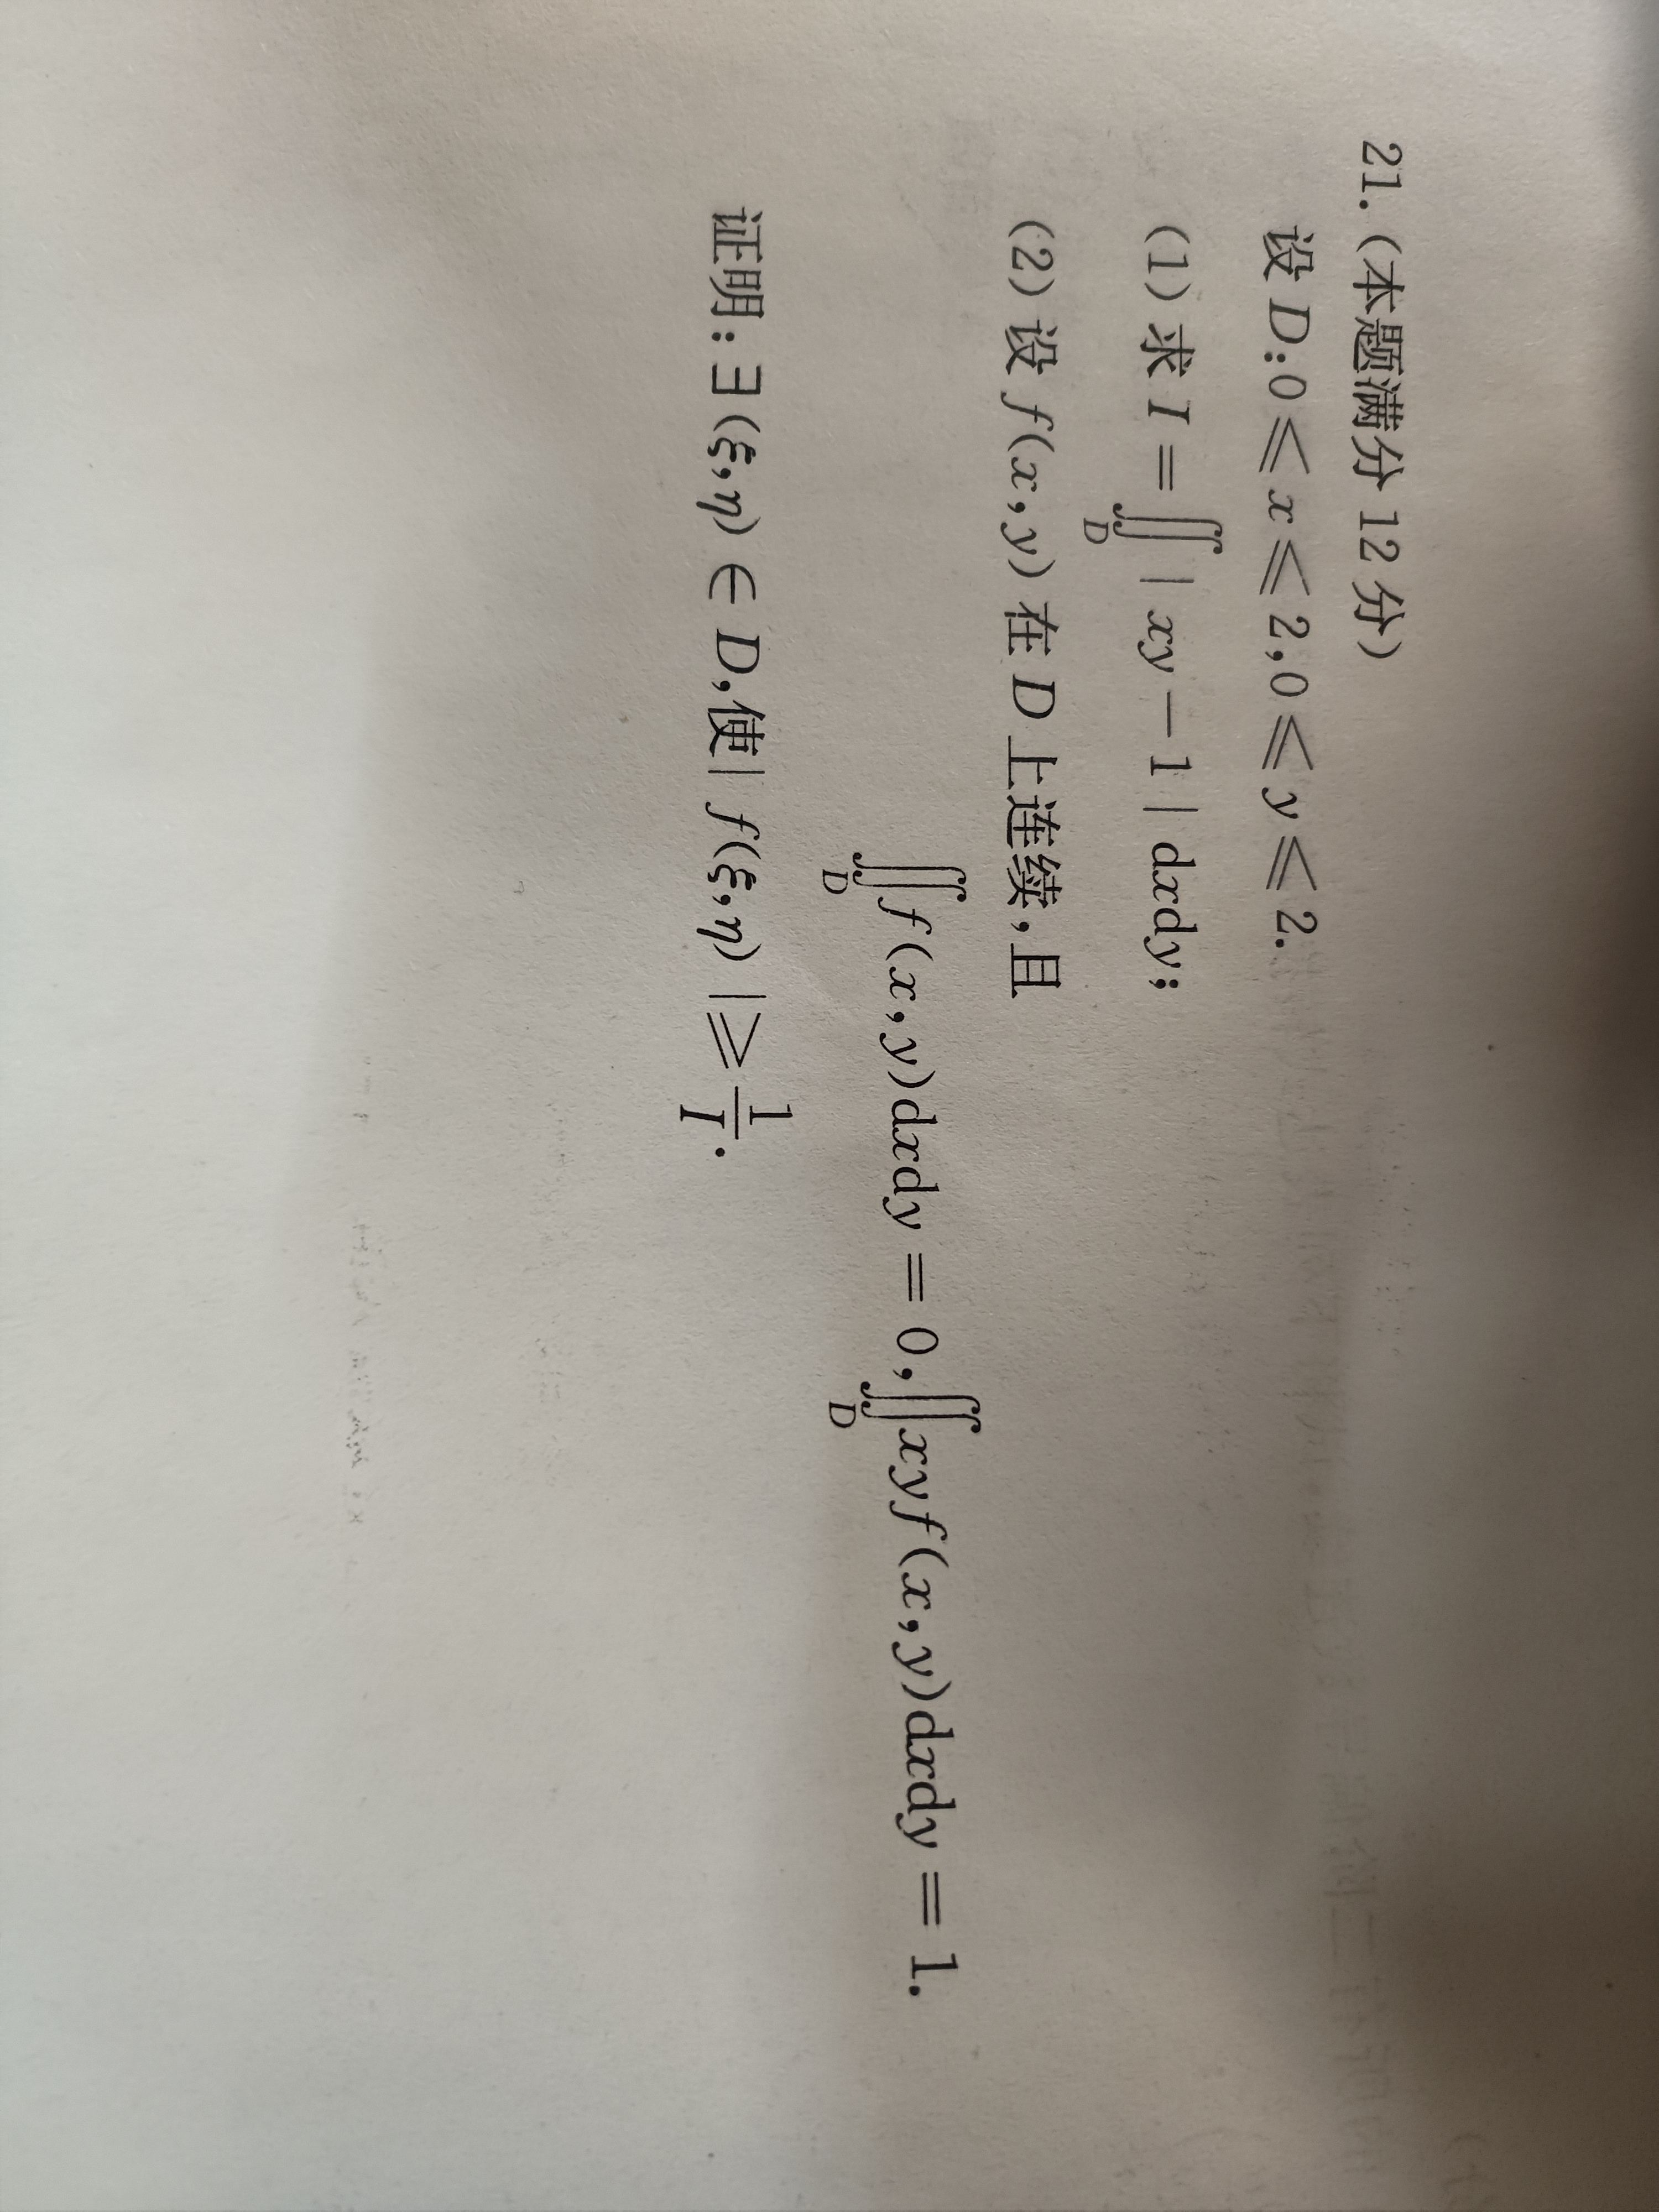 21.(本题满分 12 分)
设 D:0⩽x⩽2,0⩽y⩽2.
(1) 求 I = ∬_D | xy − 1 | dxdy;
(2) 设 f(x,y) 在 D 上连续,且
∬_D f(x,y)dxdy = 0,∬_D xyf(x,y)dxdy = 1.
证明:∃(ξ,η) ∈ D,使| f(ξ,η) |⩾ 1/I.